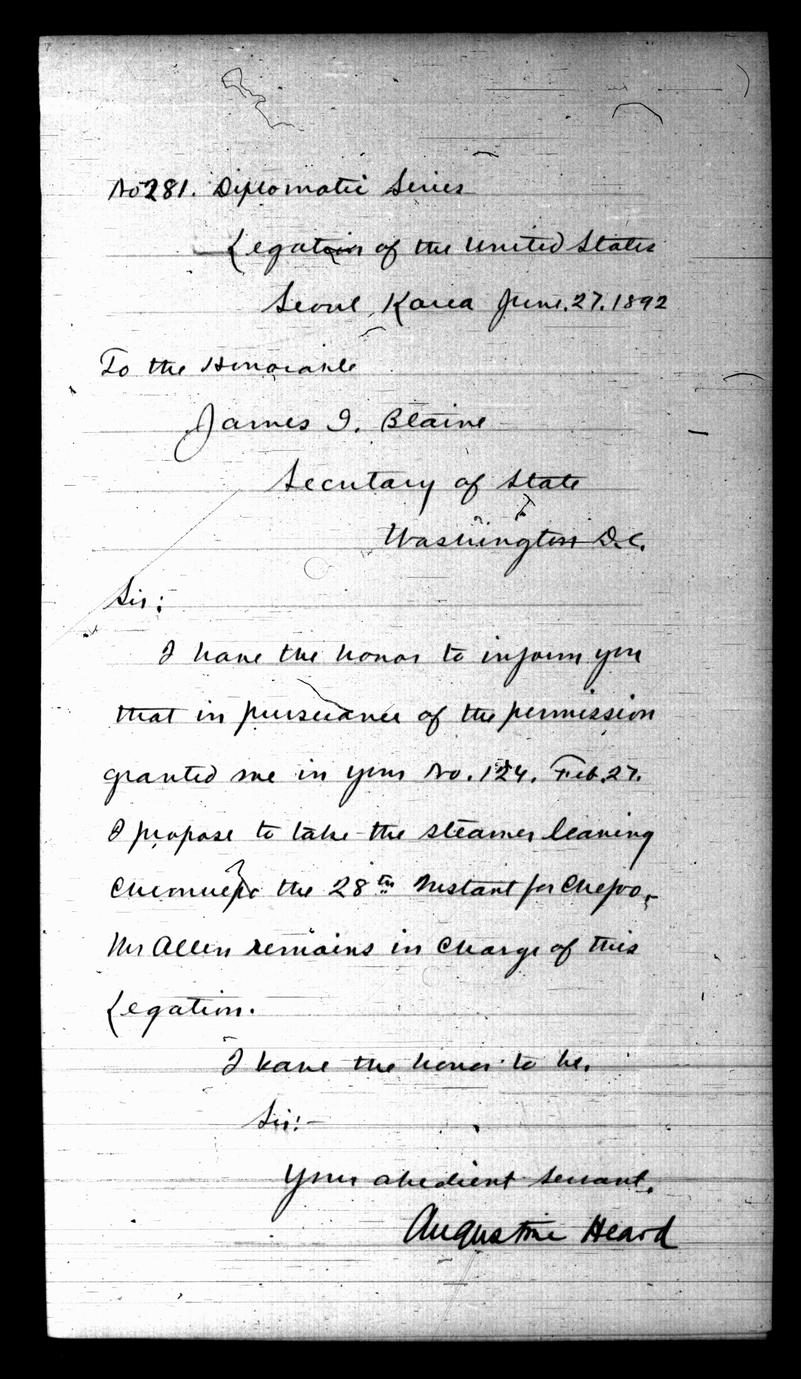 No 281. Diplomatic Series
Legation of the United States
Seoul, Korea June. 27. 1892
To the Honorable
James G. Blaine
Secretary of State
Washington D.C.
Sir:
I have the honor to inform you
that in pursuance of the permission
granted me in your No. 124. Feb. 27.
I propose to take the steamer leaving
Chemulpo the 28th Instant for Chefoo,-
Mr Allen remains in Charge of this
Legation.
I have the honor to be.
Sir:-
Your obedient servant.
Augustine Heard